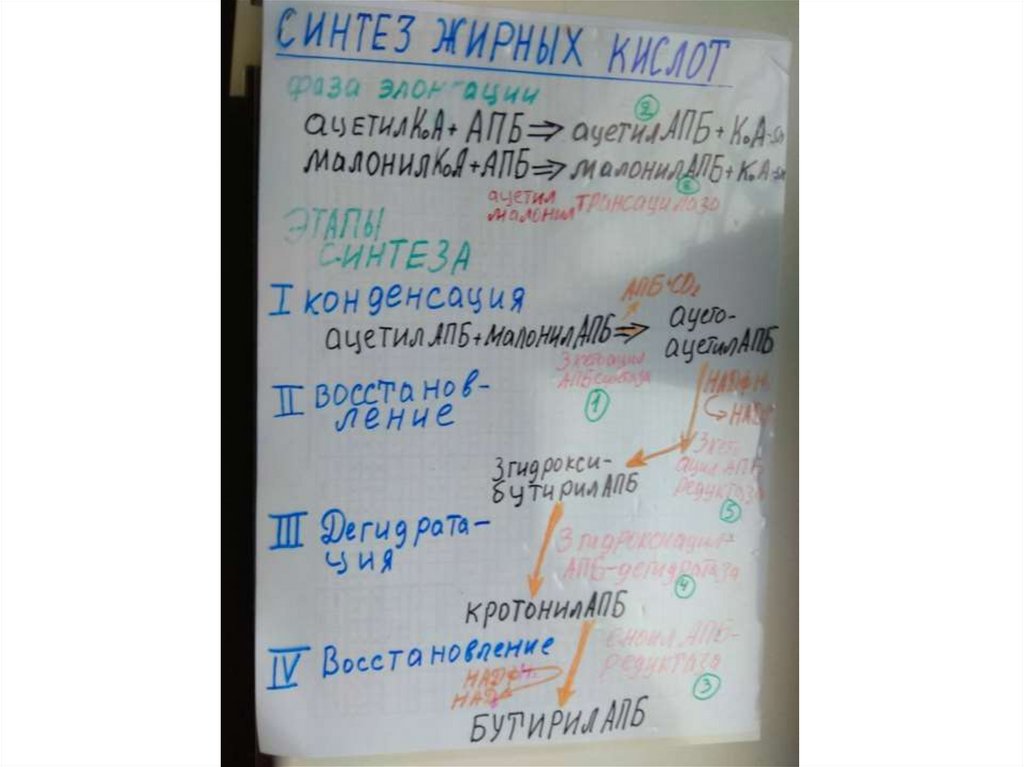 СИНТЕЗ ЖИРНЫХ КИСЛОТ
фаза элонгации
2
ацетилКоА + АПБ ⇒ ацетилАПБ + КоА-SH
малонилКоА + АПБ ⇒ малонилАПБ + КоА-SH
ацетил
малонил трансацилаза
ЭТАПЫ
СИНТЕЗА
I конденсация
АПБ+CO₂
ацетилАПБ + малонилАПБ ⇒ ацето-
ацетилАПБ
3кетоацил
АПБсинтаза
1
II восстанов-
ление
НАДФН₂
3кето
ацилАПБ
редуктаза
5
3гидрокси-
бутирилАПБ
III Дегидрата-
ция
3гидроксиацил-
АПБ-дегидратаза
4
кротонилАПБ
IV Восстановление
еноилАПБ-
редуктаза
3
НАДФН₂
БУТИРИЛАПБ